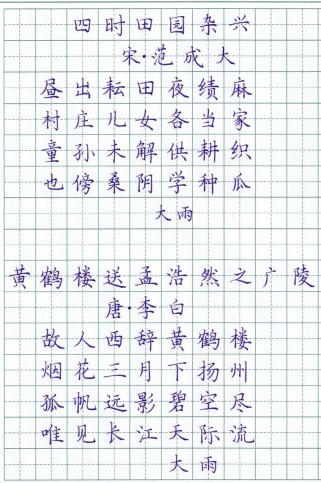 四时田园杂兴
宋·范成大
昼出耘田夜绩麻
村庄儿女各当家
童孙未解供耕织
也傍桑阴学种瓜
大雨
黄鹤楼送孟浩然之广陵
唐·李白
故人西辞黄鹤楼
烟花三月下扬州
孤帆远影碧空尽
唯见长江天际流
大雨